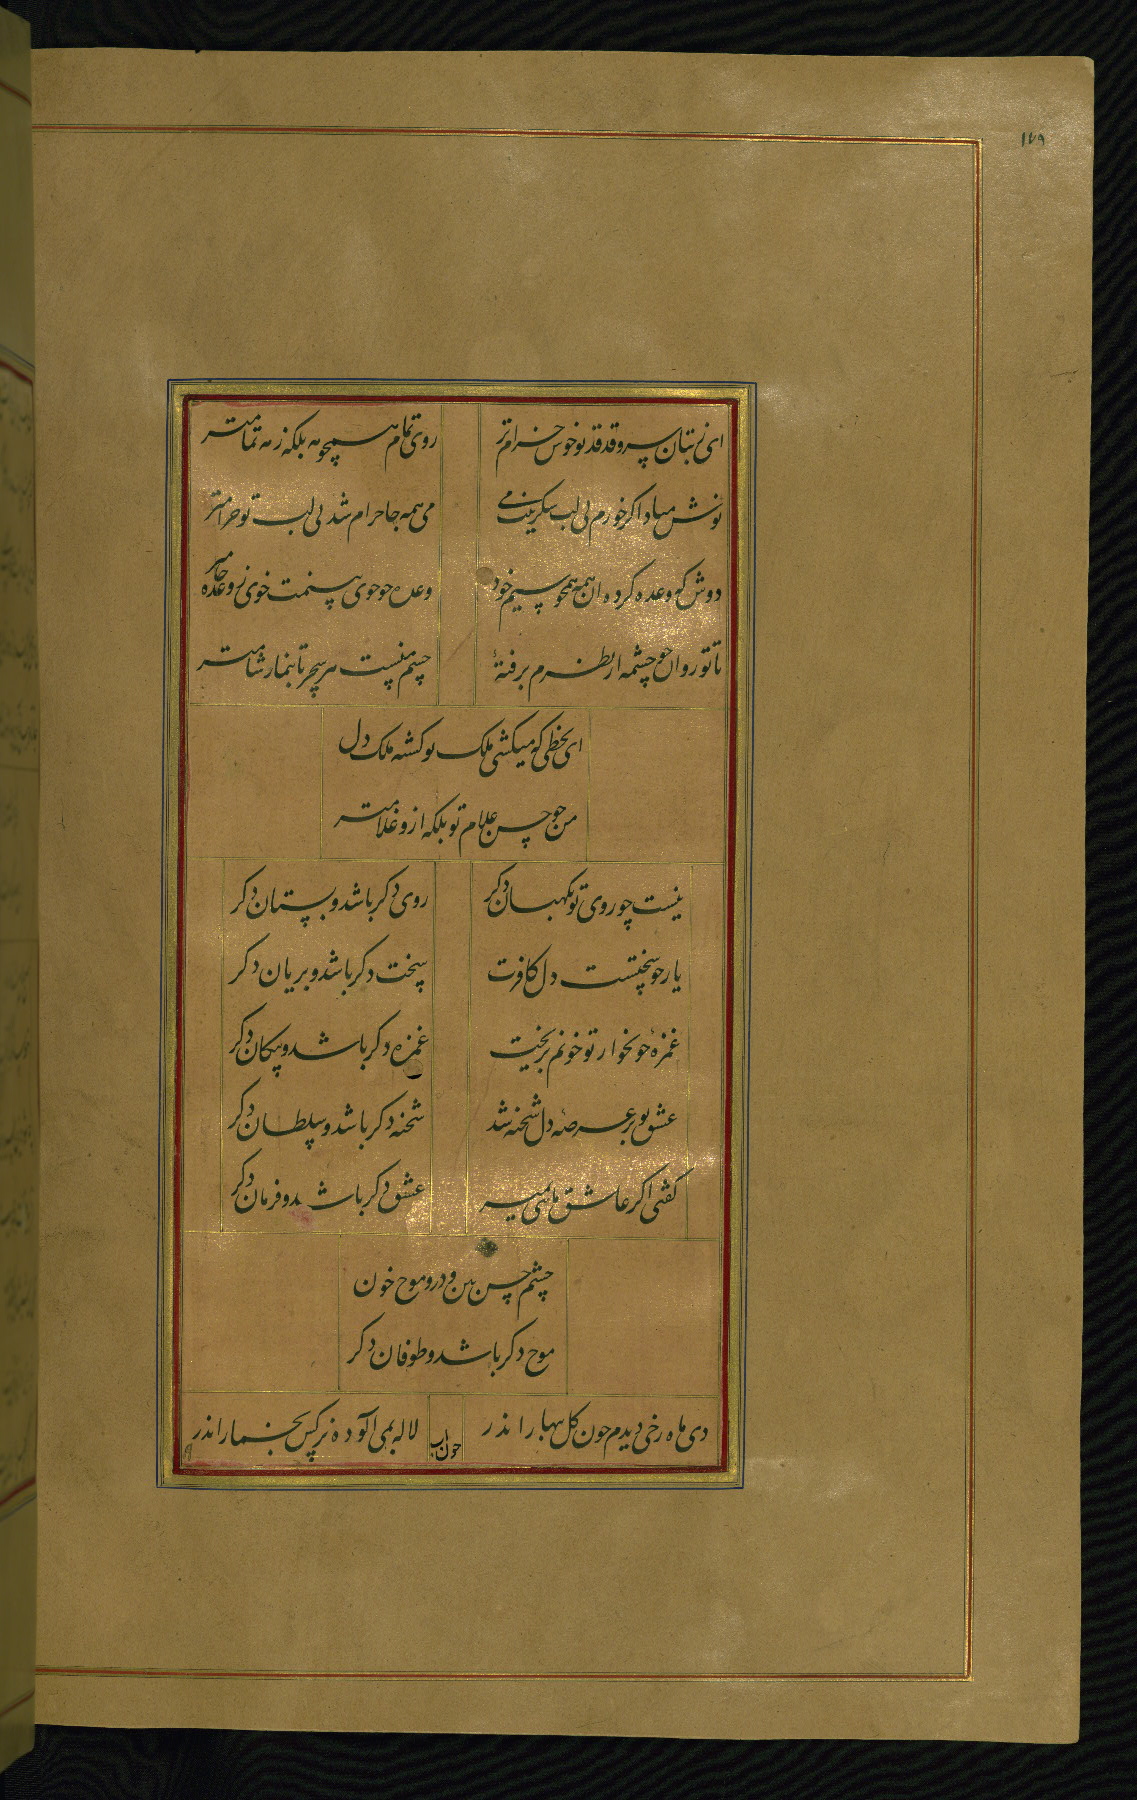 ۱۷۹
ای ز بتان سرو قد قد تو خوش خرام تر روی تمام همچو مه بلکه ز مه تمامتر
نوش مباد اکر خورم بی لب شکرینت می می همه جا حرام شد بی لب تو حرامتر
دوش که وعده کرده ان همه همچو سیم خود وعده چو خوی خوی ز وعده
تا تو روان چو چشمه از نظرم برفتهٔ چشم منست هر سحر تا بنماز شامتر
ای بخطی که میکشی ملک تو کشته ملک دل
من چو حسن غلام تو بلکه ازو غلامتر
نیست چو روی تو نکهبان دکر روی دکر باشد و بستان دکر
یار چو سختست دل کافرت سخت دکر باشد و بریان دکر
غمزهٔ خونخوار تو خونم بریخت غمزه دکر باشد و پیکان دکر
عشق تو بر عرصهٔ دل شحنه شد شحنه دکر باشد و سلطان دکر
کفتی اکر عاشق مائی بمیر عشق دکر باشد و فرمان دکر
چشم حسن بین و درو موج خون
موج دکر باشد و طوفان دکر
دی ماه رخی دیدم چون کل بهار اندر لاله بمی آلوده نرکس بخمار اندر